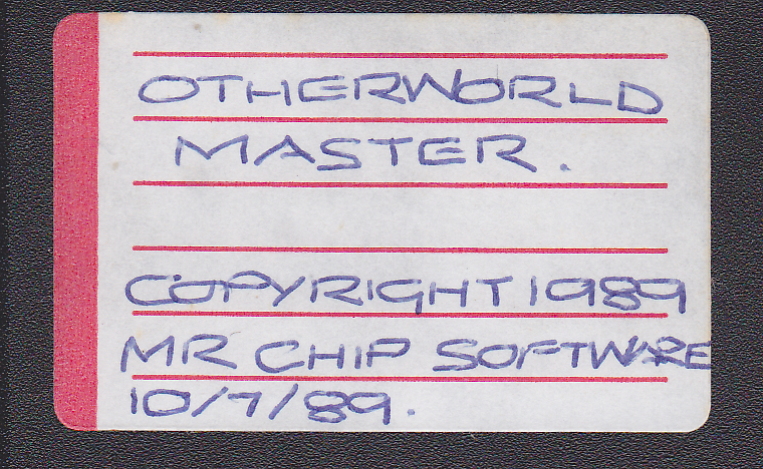 OTHERWORLD
MASTER.
COPYRIGHT 1989
MR CHIP SOFTWARE
10/7/89.